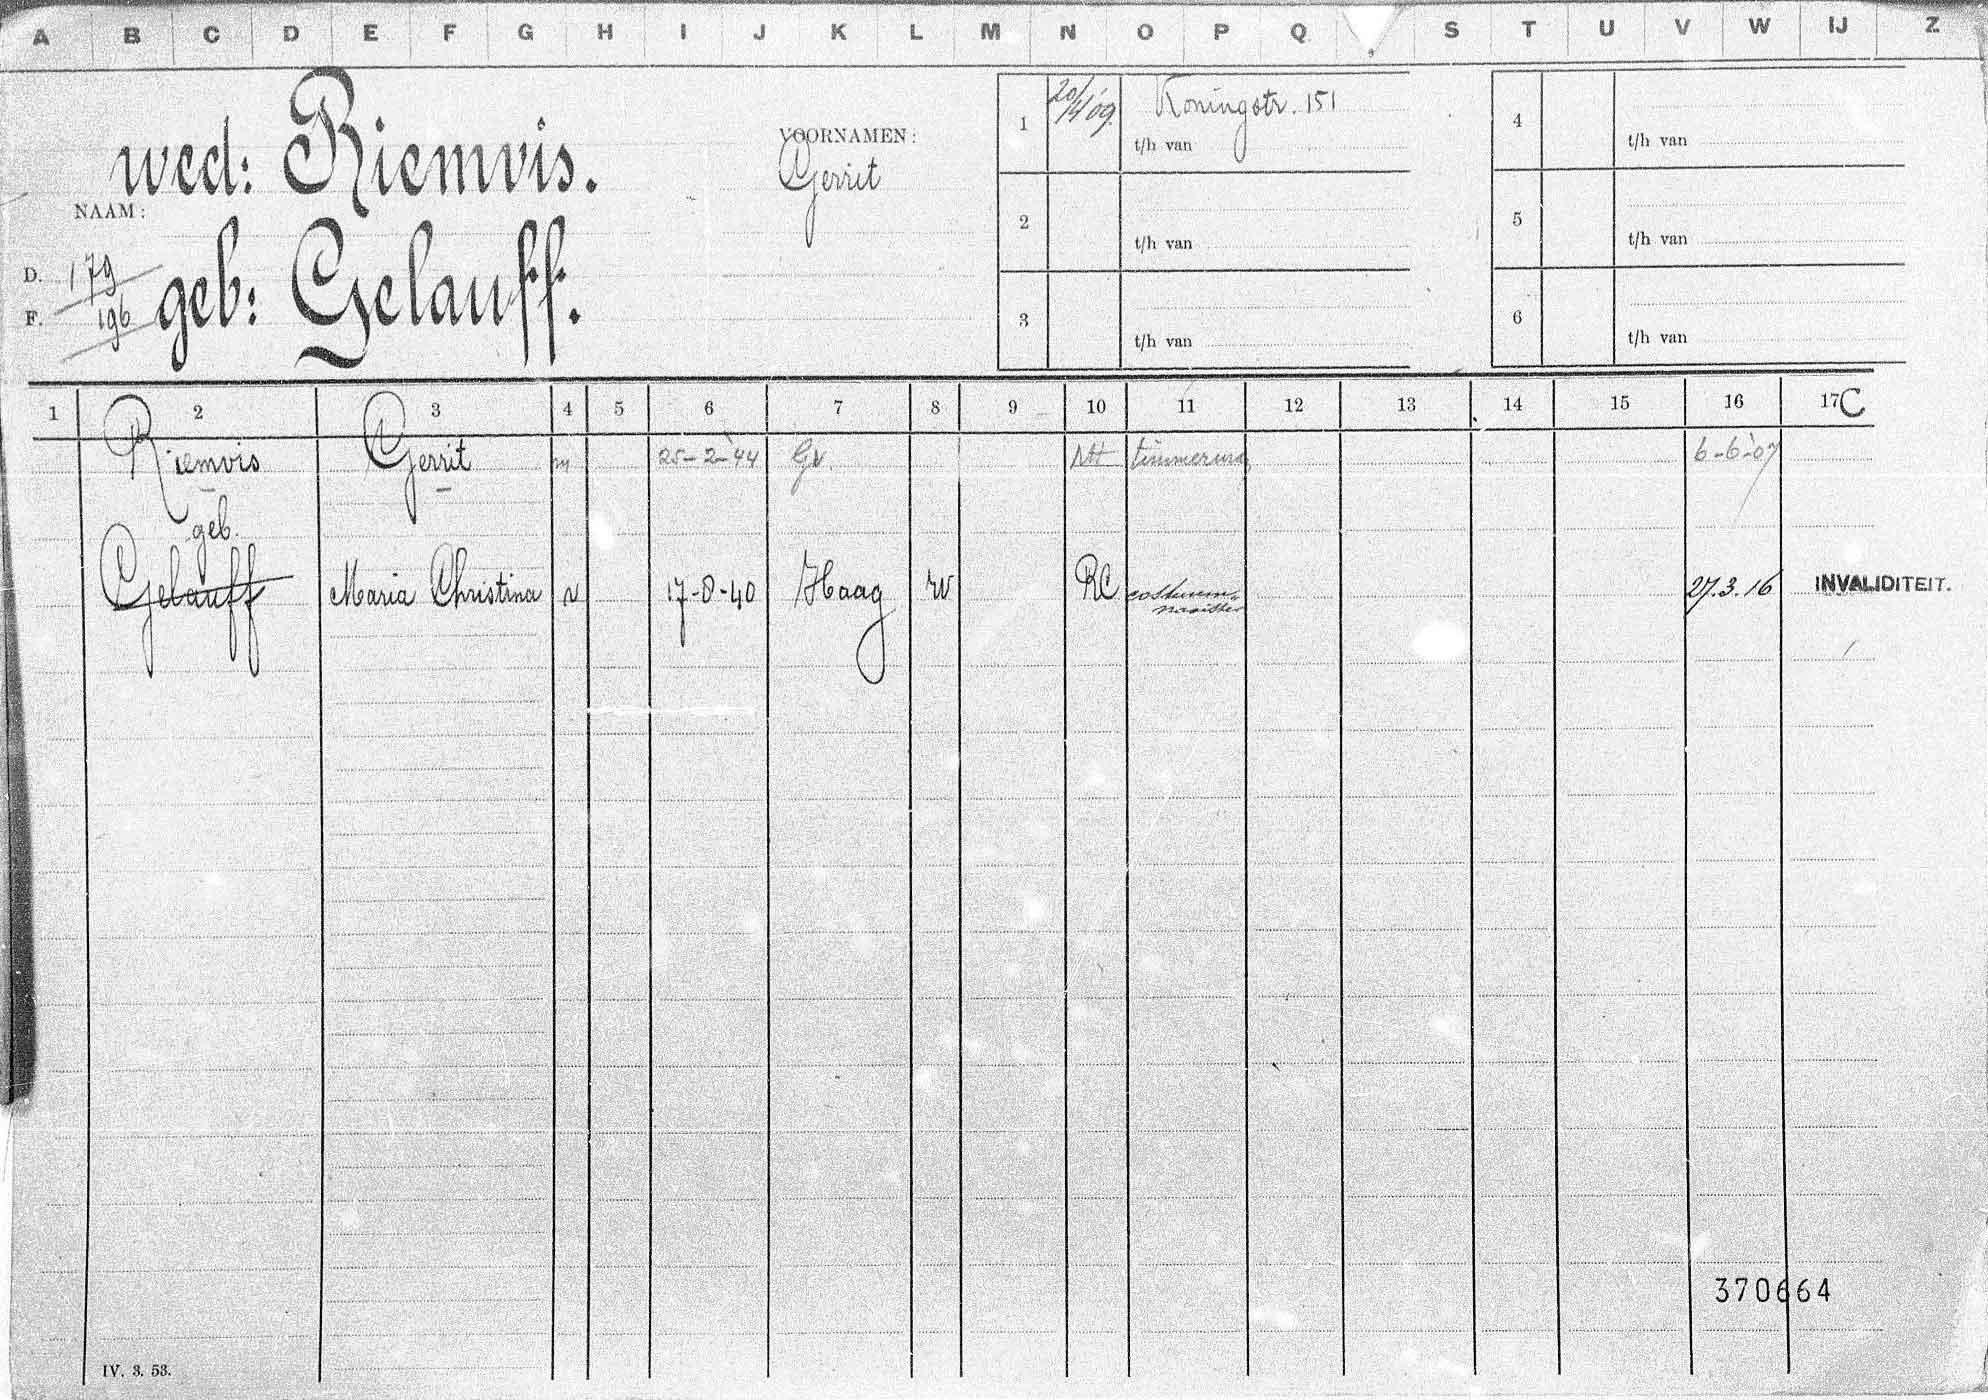 A B C D E F G H I J K L M N O P Q S T U V W IJ Z
wed: Riemvis.
NAAM:
geb: Gelauff.
D. 179
F. 196
VOORNAMEN:
Gerrit
1 20/4 '09 Koningstr. 151
t/h van
2
t/h van
3
t/h van
4
t/h van
5
t/h van
6
t/h van
1 2 3 4 5 6 7 8 9 10 11 12 13 14 15 16 17 C
Riemvis Gerrit m 25-2-'44 Gv NH timmerman 6-6-'07
geb.
Gelauff Maria Christina v 17-8-40 Haag W RC costuum- 27.3.16 INVALIDITEIT.
naaister
370664
IV. 3. 53.